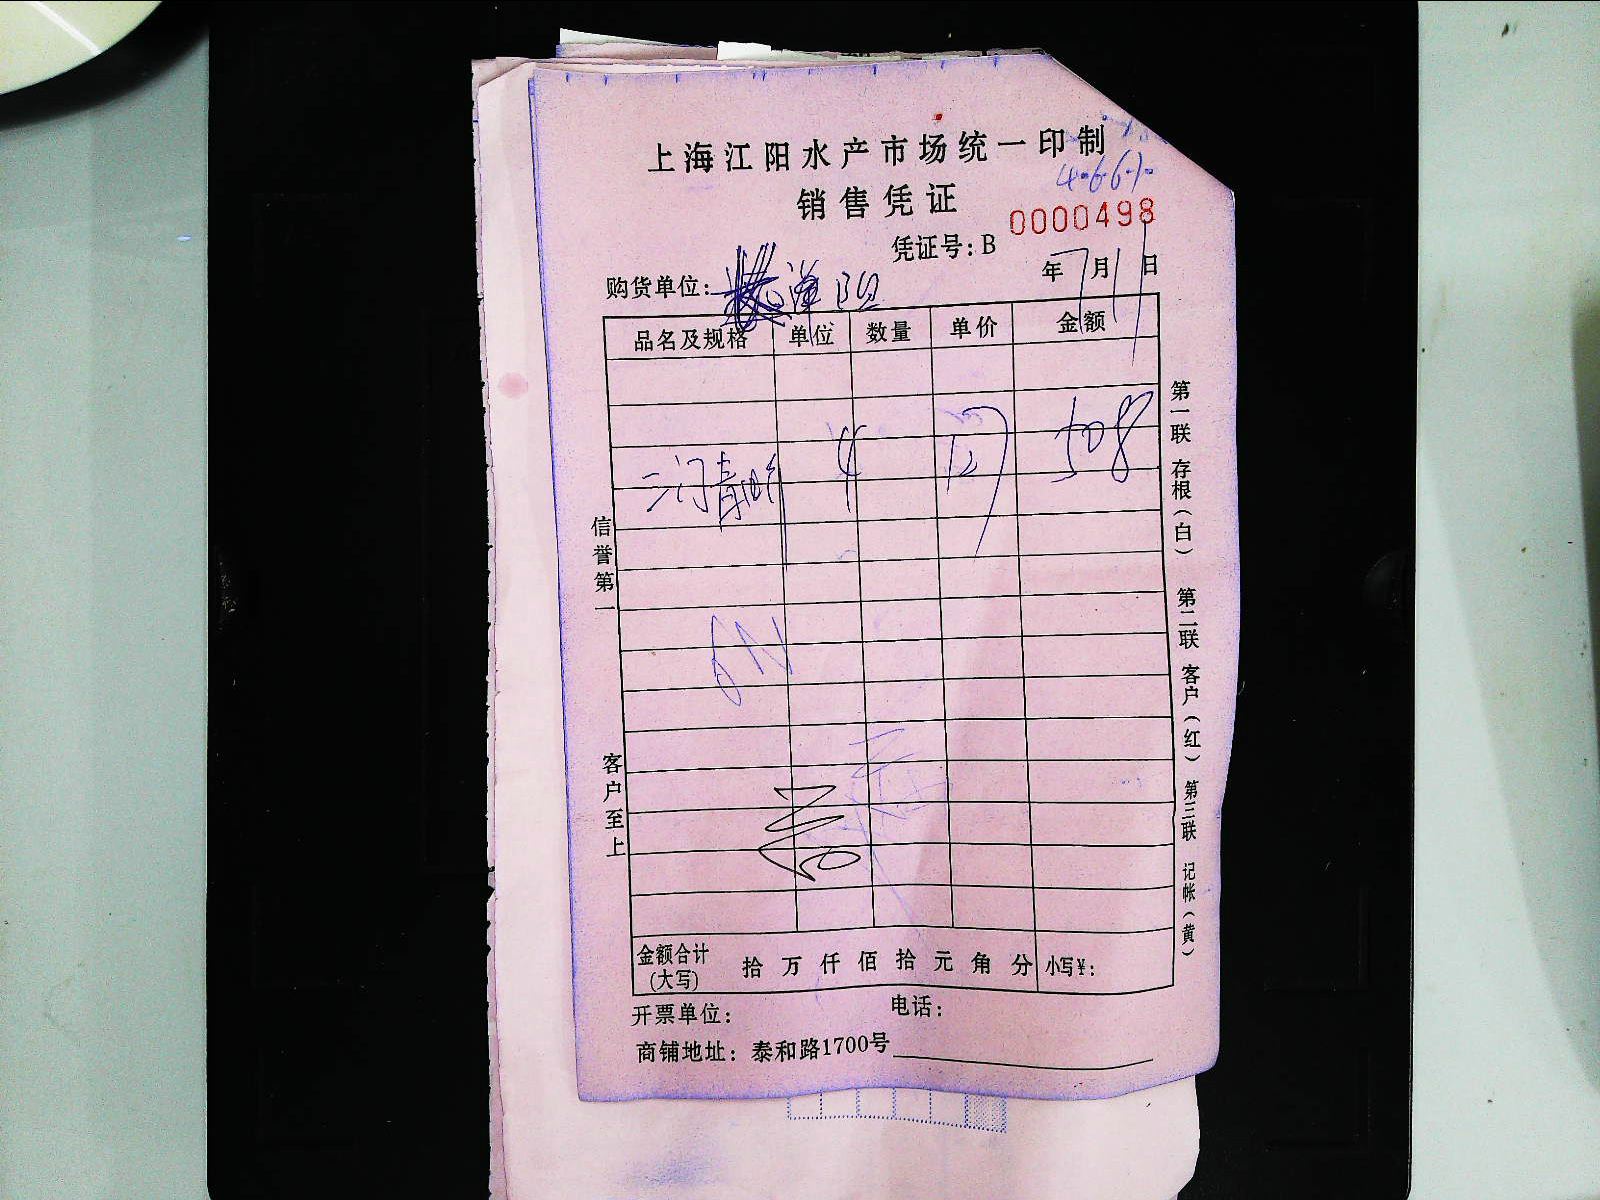 上海江阳水产市场统一印制
销售凭证
0000498
凭证号：B
购货单位：
年7月11日
品名及规格 单位 数量 单价 金额
三门青蟹 4 127 508
信誉第一
客户至上
第一联 存根（白） 第二联 客户（红） 第三联 记帐（黄）
金额合计（大写） 拾 万 仟 佰 拾 元 角 分 小写¥：
开票单位： 电话：
商铺地址：泰和路1700号